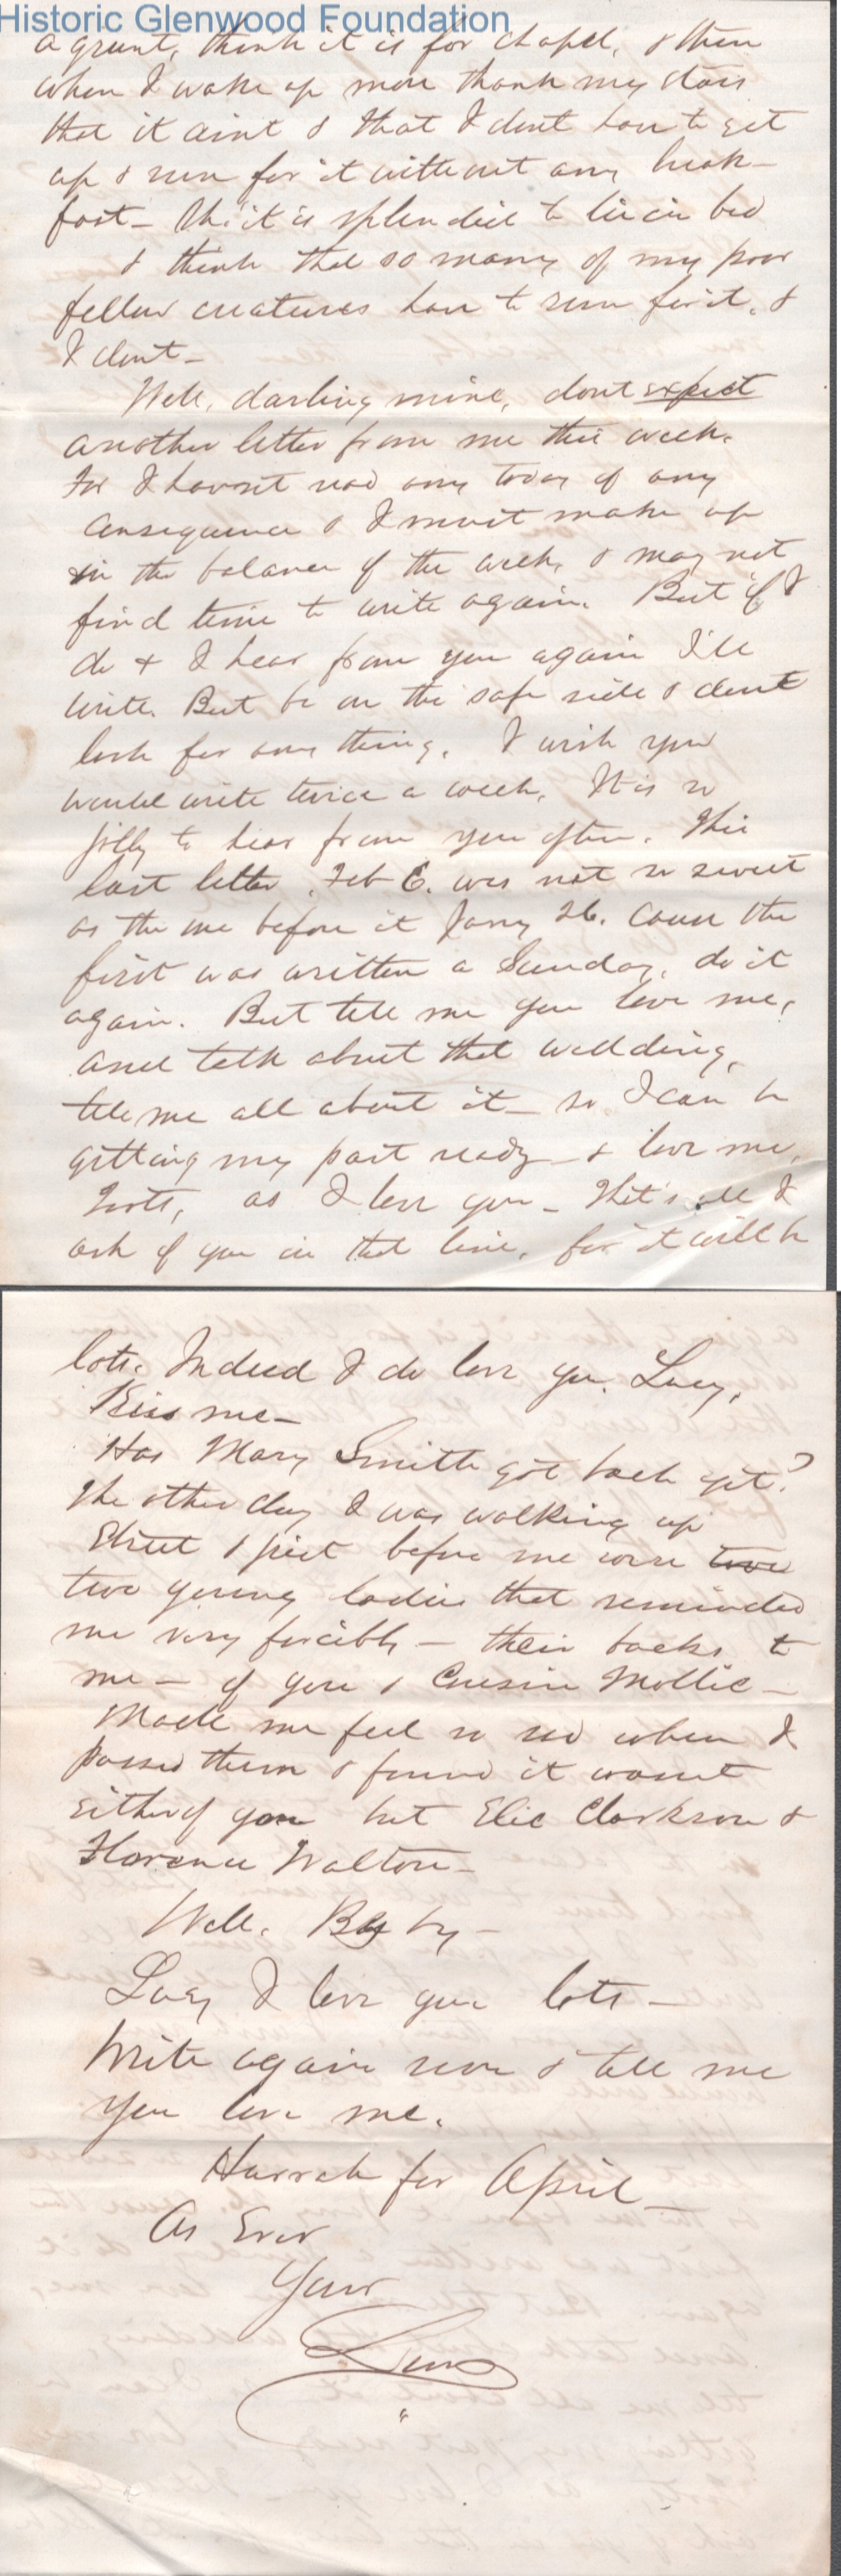 Historic Glenwood Foundation
a grunt, think it is for chapel, & then
when I wake up more thank my stars
that it aint & that I dont have to get
up & run for it without any break-
fast - Oh it is splendid to lie in bed
& think that so many of my poor
fellow creatures have to run for it, &
I dont -
Well, darling mine, dont expect
another letter from me this week.
For I havent read any today of any
consequence & I must make up
in the balance of the week, & may not
find time to write again. But if I
do & I hear from you again I'll
write. But be on the safe side & dont
look for any thing. I wish you
would write twice a week. It is so
jolly to hear from you often. This
last letter, Feb 6. was not so sweet
as the one before it Jany 26. Cause the
first was written a Sunday, do it
again. But tell me you love me,
and talk about that wedding,
tell me all about it - so I can be
getting my part ready - & love me,
lots, as I love you - That's all I
ask of you in that line, for it will be
lots. Indeed I do love you. Lucy,
Kiss me -
Has Mary Smith got back yet?
The other day I was walking up
Street & just before me were two
two young ladies that reminded
me very forcibly - their backs to
me - of you & Cousin Mollie -
Made me feel so sad when I
passed them & found it wasnt
either of you but Elie Clarkson &
Florence Walton -
Well. By by -
Lucy I love you lots -
Write again soon & tell me
you love me.
Hurrah for April -
As Ever
Your